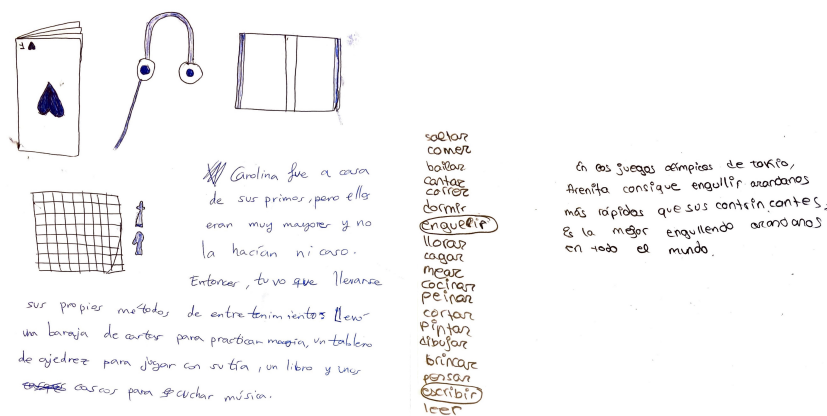 Carolina fue a casa
de sus primos, pero ellos
eran muy mayores y no
la hacían ni caso.
Entonces, tuvo que llevarse
sus propios métodos de entretenimientos llevó
una baraja de cartas para practicar magia, un tablero
de ajedrez para jugar con su tía, un libro y unos
cascos para escuchar música.
saltar
comer
bailar
cantar
correr
dormir
engullir
llorar
cagar
mear
cocinar
peinar
cortar
pintar
dibujar
brincar
pensar
escribir
leer
En los juegos olímpicos de tokio,
Arenita consigue engullir arandanos
más rápidos que sus contrincantes.
Es la mejor engullendo arandanos
en todo el mundo.